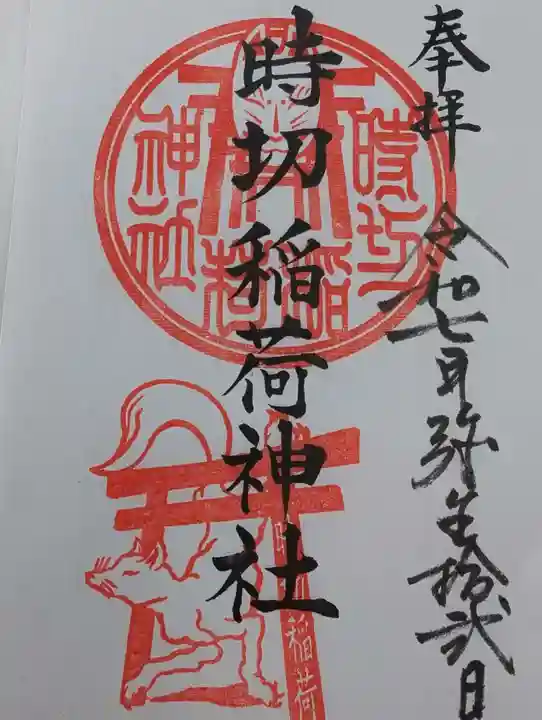 奉拝
令和七年弥生拾弐日
時切稲荷神社
時切
稲荷
神社
稲荷